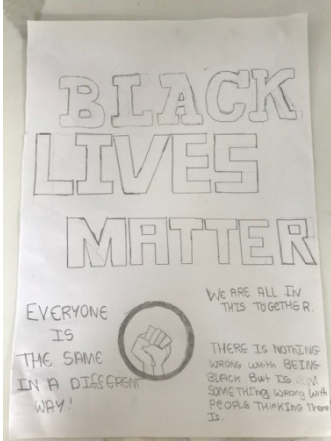 BLACK
LIVES
MATTER
EVERYONE
IS
THE SAME
IN A DIFFERENT
WAY!
WE ARE ALL IN
THIS TOGETHER.
THERE IS NOTHING
WRONG WHITH BEING
BLACK BUT IS
SOMETHING WRONG WITH
PEOPLE THINKING THERE
IS.